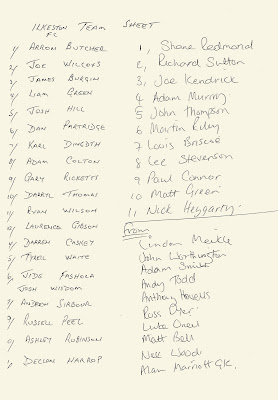 ILKESTON TEAM SHEET
FC
1/ ARRON BUTCHER
2/ JOE WILCOXS
3/ JAMES BURGIN
4/ LIAM GREEN
5/ JOSH HILL
6/ DAN PARTRIDGE
7/ KARL DIMBOTH
8/ ADAM COLTON
9/ GARY RICKETTS
10/ DARRYL THOMAS
11/ RYAN WILSON
LAURENCE GIBSON
DARREN CASKEY
TYREL WAITE
JIDE FASHOLA
JOSH WISDOM
ANDREW SIRBOUR
RUSSELL PEEL
ASHLEY ROBINSON
DECLAN HARROP
1, Shane Redmond
2, Richard Sutton
3, Joe Kendrick
4 Adam Murray
5 John Thompson
6 Martin Riley
7 Louis Briscoe
8 Lee Stevenson
9 Paul Connor
10 Matt Green
11 Nick Heggarty.
From
Lindon Meikle
John Worthington
Adam Smith
Andy Todd
Anthony
Ross Dyer
Luke
Matt Bell
Ness Wood
Alan Marriott GK.